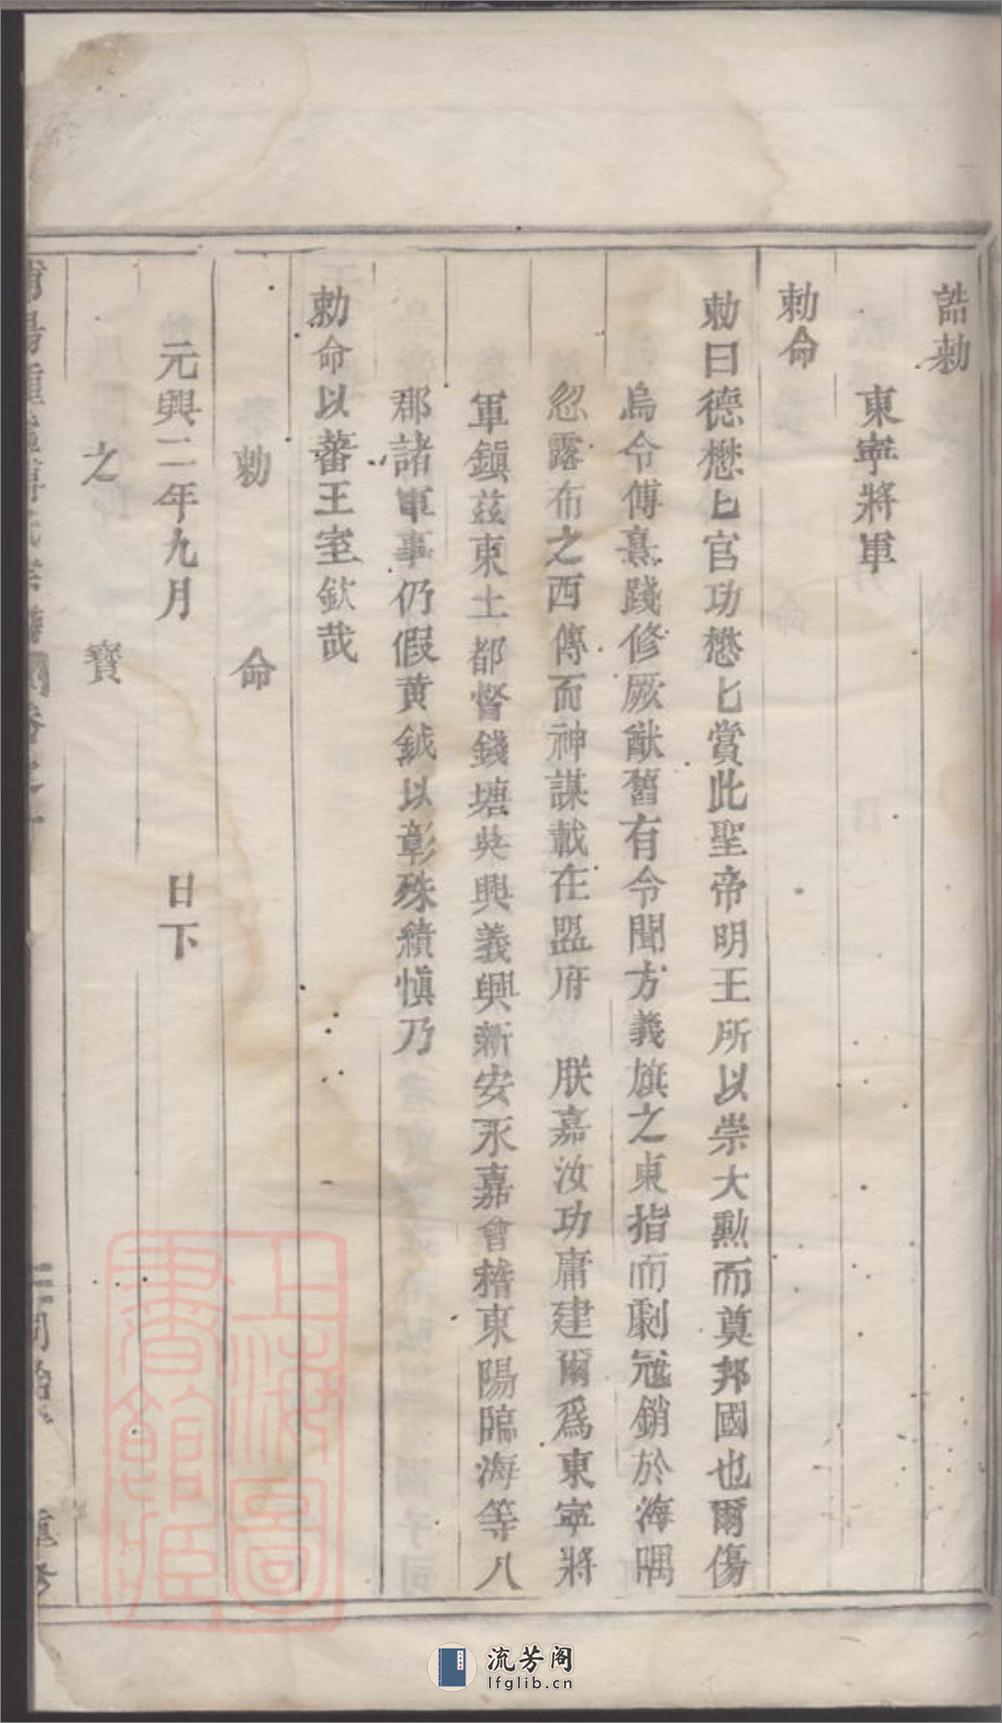 誥勅
東寧將軍
勅命
勅曰德懋懋官功懋懋賞此聖帝明王所以崇大勲而奠邦國也爾傷
烏令傅熹踐修厥猷舊有令聞方義旗之東指而劇冦銷於海隅
忽露布之西傳而神謀載在盟府 朕嘉汝功庸建爾爲東寧將
軍鎭茲東土都督錢塘吳興義興新安永嘉會稽東陽臨海等八
郡諸軍事仍假黄鉞以彰殊績愼乃
勅命以蕃王室欽哉
勅 命
元興二年九月 日下
之 寶
上海圖書館藏
流芳阁
lfglib.cn